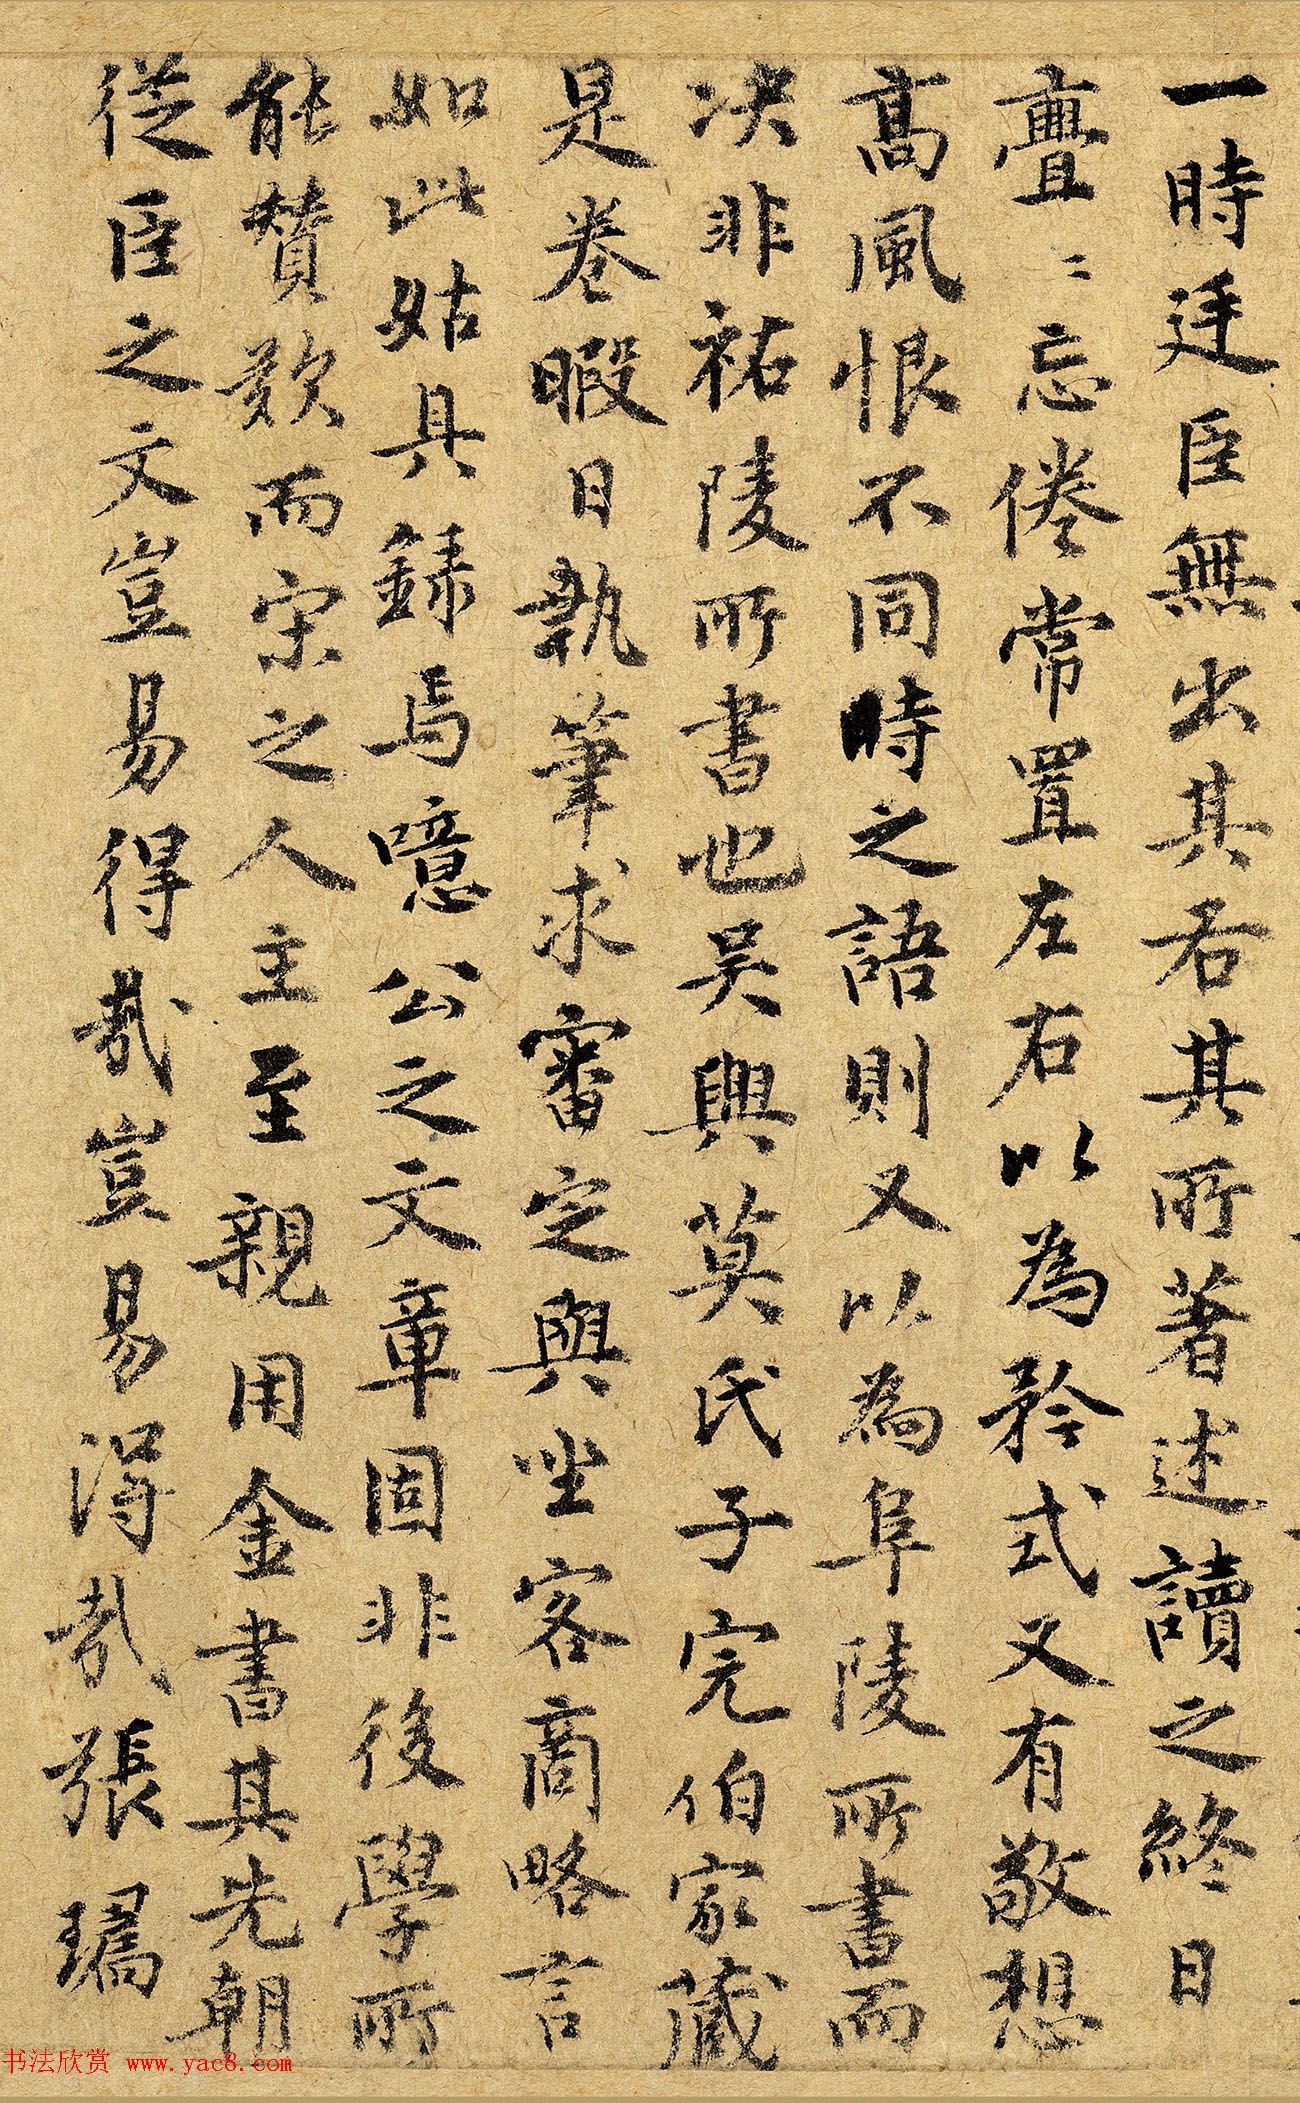 一時廷臣無出其右其所著述讀之終日
亹〻忘倦常置左右以為矜式又有敬想
高風恨不同時之語則又以為阜陵所書而
决非祐陵所書也吴興莫氏子完伯家藏
是卷暇日執筆求審定與坐客商略言
如此姑具録焉噫公之文章固非後學所
能賛歎而宋之人主至親用金書其先朝
從臣之文豈易得哉豈易得哉張
书法欣赏 www.yac8.com